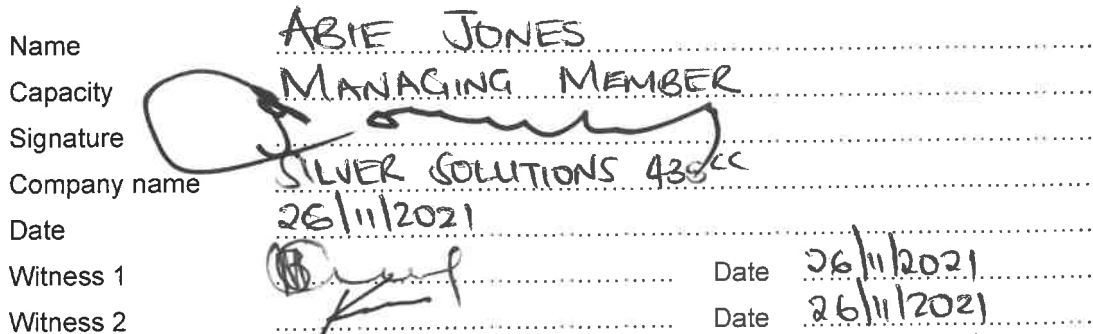 Name ABIE JONES
Capacity MANAGING MEMBER
Signature
Company name SILVER SOLUTIONS 438 CC
Date 26/11/2021
Witness 1 Date 26/11/2021
Witness 2 Date 26/11/2021